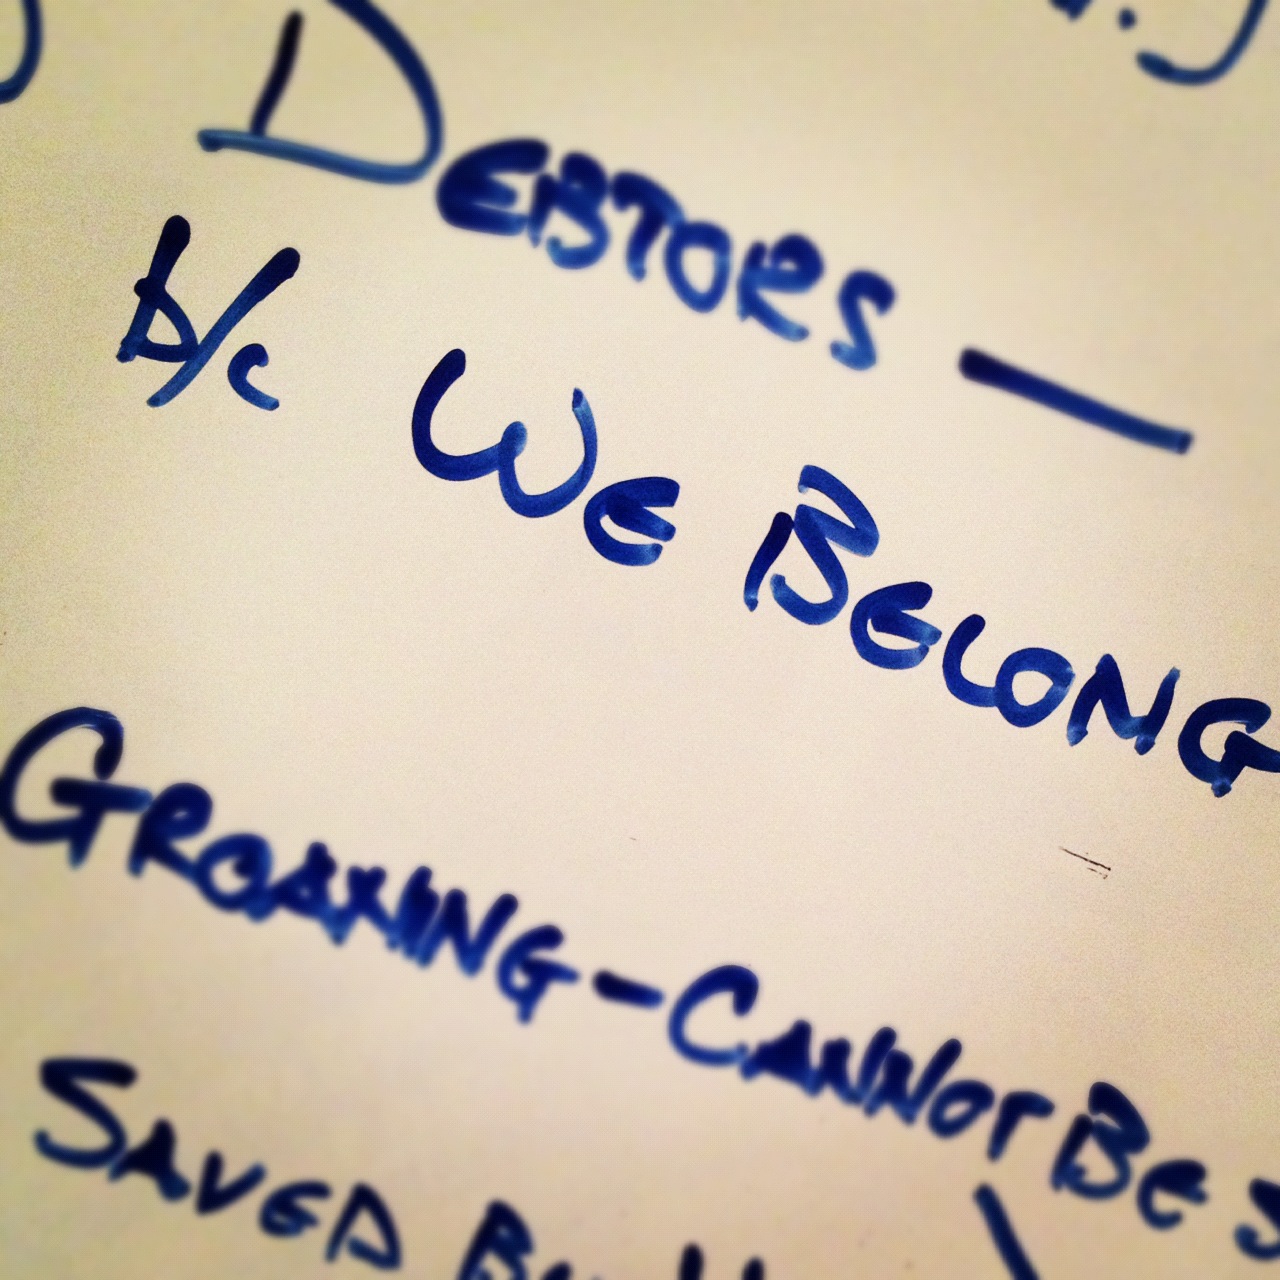 DEBTORS —
B/C WE BELONG
GROANING - CANNOT BE
SAVED